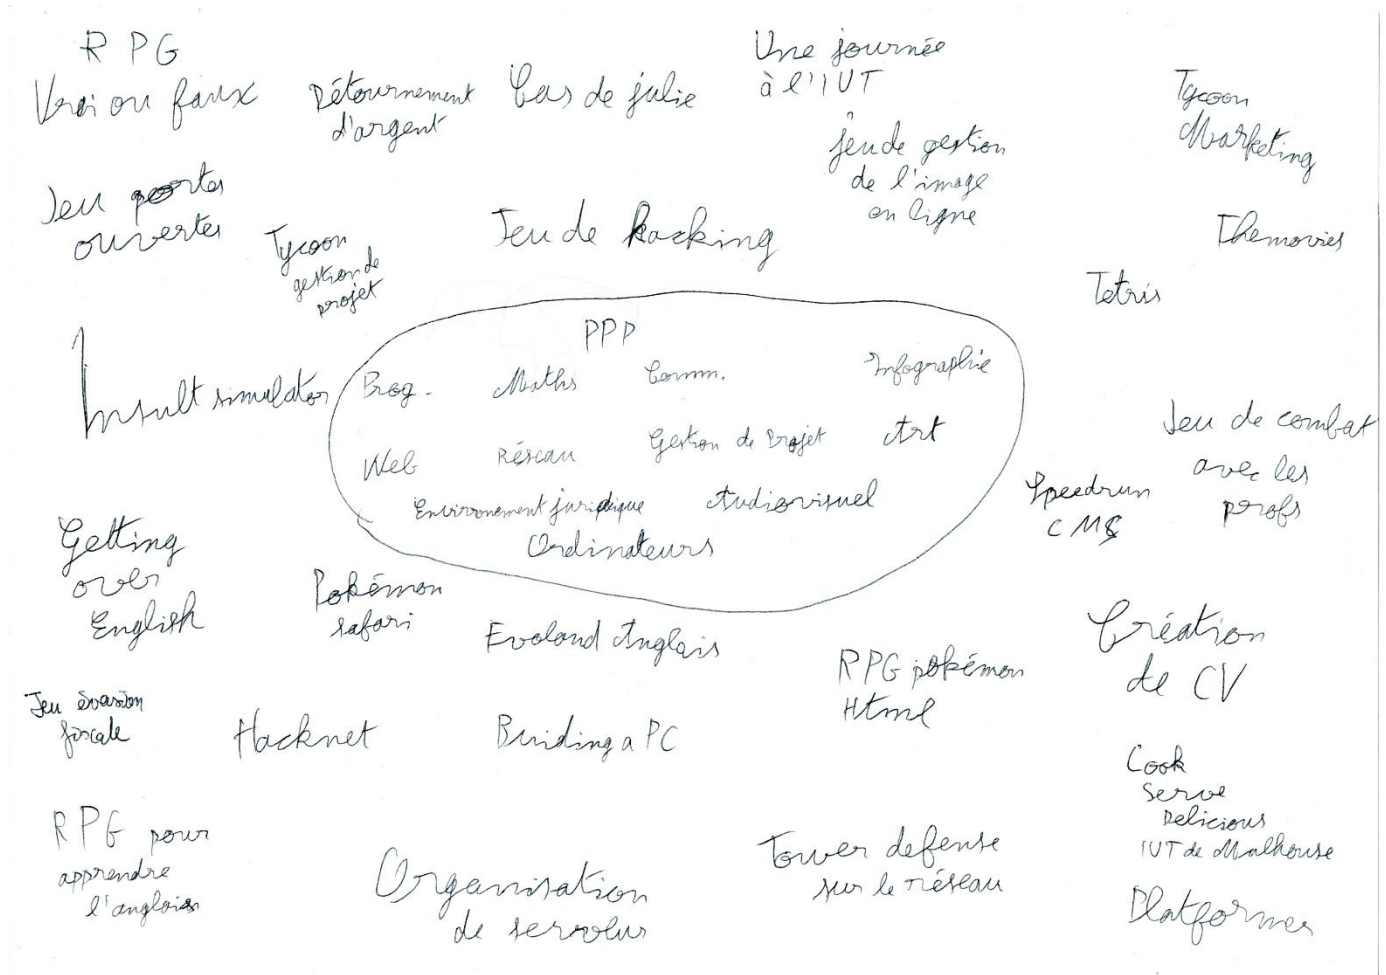 RPG
Vrai ou faux
Détournement
d'argent
Cas de julie
Une journée
à l'IUT
jeu de gestion
de l'image
en ligne
Tycoon
Marketing
Jeu portes
ouvertes
Tycoon
gestion de
projet
Jeu de hacking
Themovies
Tetris
Insult simulator
PPP
Prog.
Maths
Comm.
Infographie
Web
Réseau
Gestion de Projet
Art
Environement juridique
Audiovisuel
Ordinateurs
Jeu de combat
avec les
profs
Speedrun
CMS
Getting
over
English
Pokémon
safari
Evoland Anglais
RPG pokémon
Html
Création
de CV
Jeu évasion
fiscale
Hacknet
Buiding a PC
Cook
Serve
Delicious
IUT de Mulhouse
RPG pour
apprendre
l'anglais
Organisation
de serveurs
Tower defense
sur le réseau
Platformer